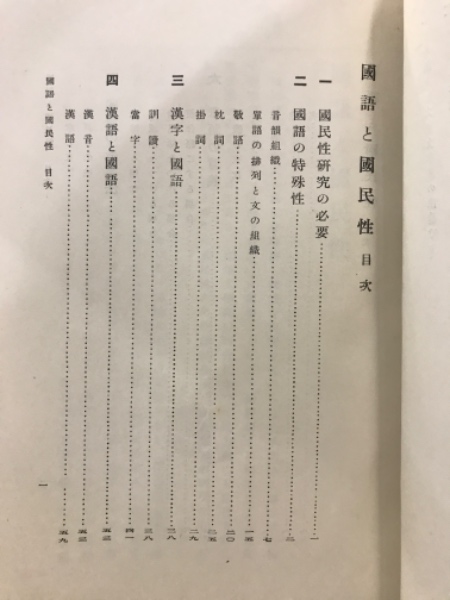 國語と國民性 目次
一 國民性硏究の必要……一
二 國語の特殊性……二
音韻組織……七
單語の排列と文の組織……一五
敬語……二〇
枕詞……二五
掛詞……二九
三 漢字と國語……三八
訓讀……三八
當字……四一
四 漢語と國語……五三
漢音……五三
漢語……五九
國語と國民性 目次
一